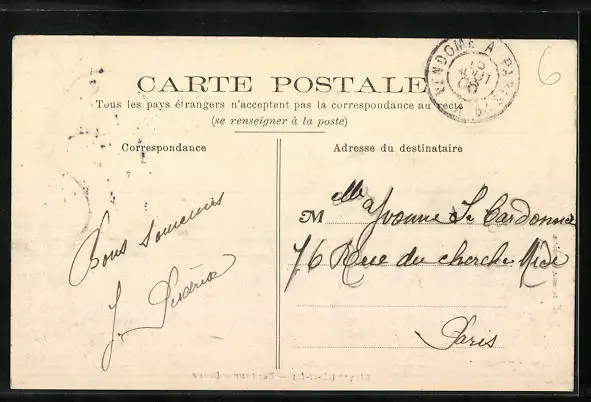 CARTE POSTALE
Tous les pays étrangers n'acceptent pas la correspondance au recto
(se renseigner à la poste)
Correspondance
Adresse du destinataire
VENDOME A PARIS
15
AOUT
6
Bons souvenirs
J.
Mlle Yvonne Le Cardonnel
76 Rue du cherche Midi
Paris